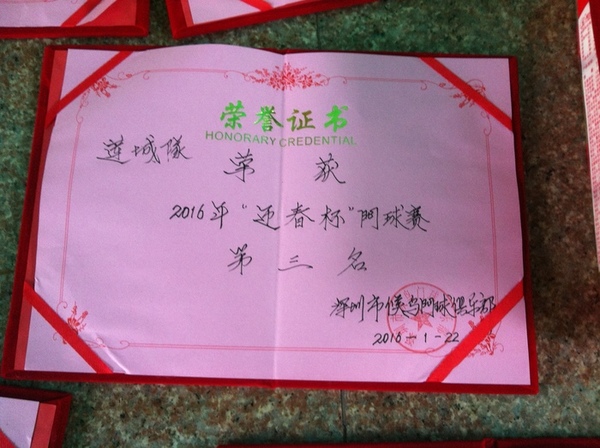 荣誉证书
HONORARY CREDENTIAL
莲城隊 荣获
2016年"迎春杯"門球赛
第三名
深圳市候鸟門球俱乐部
2016-1-22